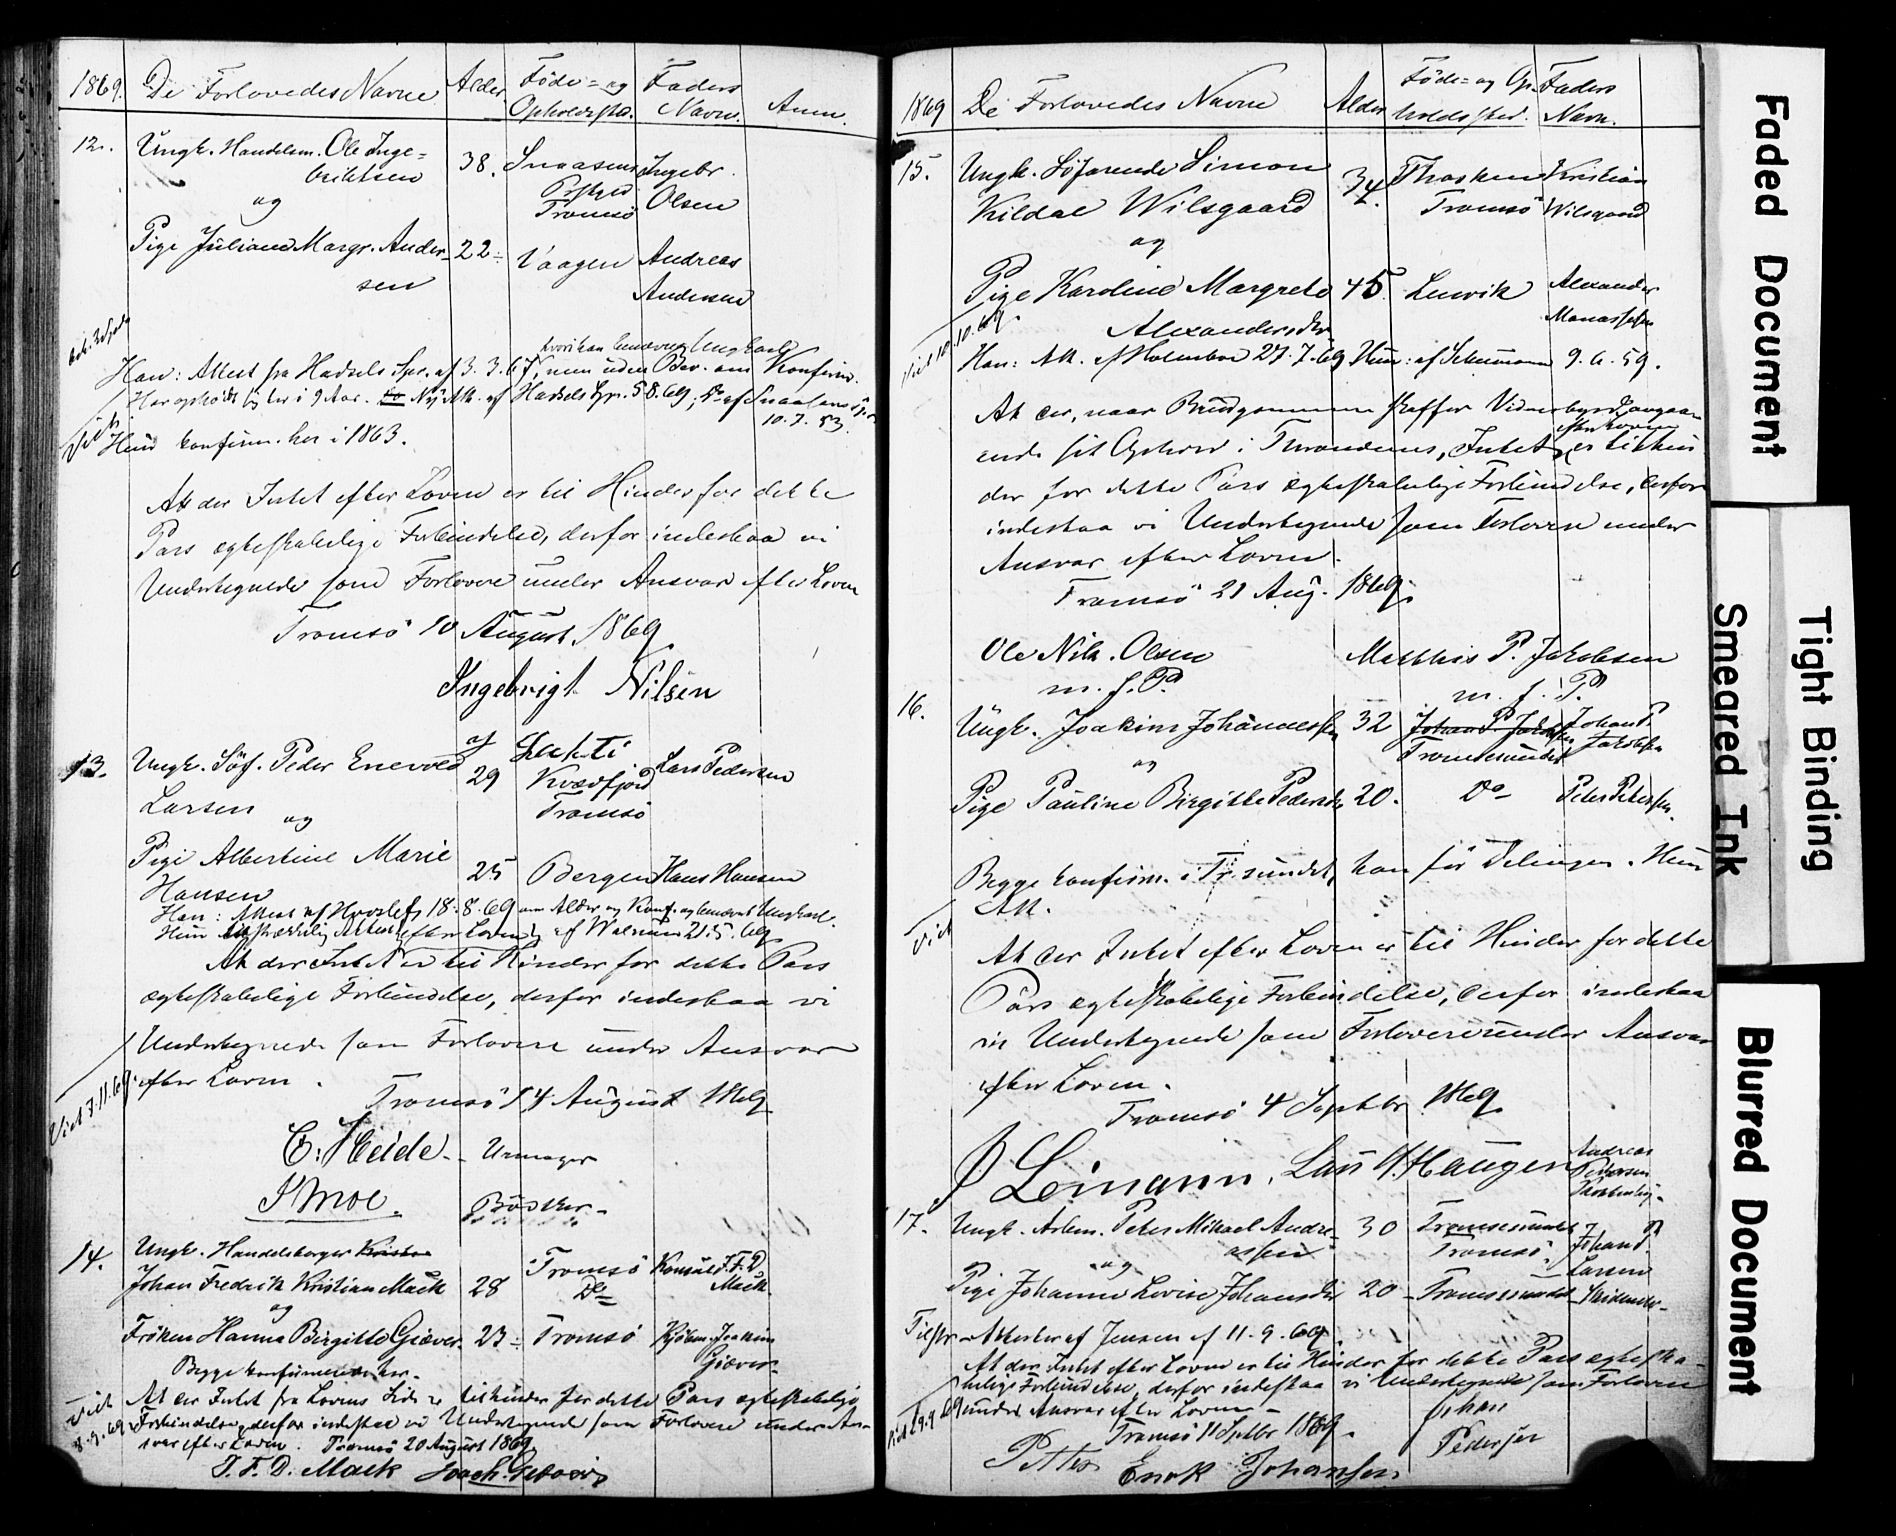 1869. De Forlovedes Navne Alder Föde- og Faders
Opholdssted. Navn. Anm.
12. Ungk. Handelsm. Ole Inge-
briktsen 38. Snaasens Ingebr.
og Prstgjd Olsen
Tromsö
Pige Juliane Margr. Ander- 22 Vaagen Andreas
sen Andersen
Han: Attest fra Hadsels Spr. af 3.3.67, men uden Bev. om Konfirm.
Har opholdt sig her i 9 Aar. Ny Att. af Hadsels Spr. 5.8.69; Do af Snaasens
10.7.53.
Viet
Hun konfirm. her i 1863.
At der Intet efter Loven er til Hinder for dette
Pars ægteskabelige Forbindelse, derfor indestaa vi
Undertegnede som Forlovere under Ansvar efter Loven
Tromsö 10 August 1869
Ingebrigt Nilsen
13. Ungk. Söf. Peder Enevold 29 Kvædfjord Lars Pedersen
Larsen Tromsö
og
Pige Albertine Marie 25 Bergen Hans Hansen
Hansen
Han: Attest af 18.8.69 om Alder og Konf. og benævnt Ungkarl.
Hun af 21.5.69
At der Intet er til Hinder for dette Pars
ægteskabelige Forbindelse, derfor indestaa vi
Undertegnede som Forlovere under Ansvar
efter Loven.
Viet 7.11.69.
Tromsö 14 August 1869
E: Heide. Urmager
I Moe. Bödker
14. Ungk. Handelsborger
Johan Fredrik Kristian Mack 28 Tromsö Konsul J. F. D.
Do Mack
og
Fröken Hanna Birgitte Giæver 23 Tromsö Kjöbm. Joakim
Giæver
Begge konfirmerede her.
Viet At der Intet fra Lovens Side er til Hinder for dette Pars ægteskabelige
8.9.69 Forbindelse, derfor indestaa vi Undertegnede som Forlovere under An-
svar efter Loven. Tromsö 20 August 1869
J. F. D. Mack Joach. Giæver
1869 De Forlovedes Navne Alder Föde- og Op- Faders
holdssted. Navn.
15. Ungk. Söfarende Simon 34. Trondenes Kristian
Kildal Wilsgaard Tromsö Wilsgaard
og
Pige Karoline Margrete 45 Lenvik Alexander
Alexandersdtr Manassesen
Viet 10.10.69.
Han: Att. af Holmboe 27.7.69 Hun: af 9.6.59.
At der, naar Brudgommen skaffer Vidnesbyrd angaa-
ende sit Ophold i Throndenes, Intet efter Loven er til Hin
der for dette Pars ægteskabelige Forbindelse, derfor
indestaa vi Undertegnede som Forlovere under
Ansvar efter Loven.
Tromsö 21 Aug. 1869.
Ole Nik. Olsen Matthis P. Jakobsen
m. f. P. m. f. P.
16. Ungk. Joakim Johannessen 32 Johan P. Jakobsen Johan P.
Tromsesundet Jakobsen
og
Pige Pauline Birgitte Pedersdtr 20. Do Peter Petersen.
Begge konfirm. i Tr.sundet, han för Delingen. Hun
Att.
Viet
At der Intet efter Loven er til Hinder for dette
Pars ægteskabelige Forbindelse, derfor indestaa
vi Undertegnede som Forlovere under Ansvar
efter Loven.
Tromsö 4 Septbr. 1869.
P Leimann. Lars H. Haugen
Andreas
Pedersen
17. Ungk. Arbm. Peter Mikael Andre- 30 Tromsesundet
assen Tromsö
og Johan P.
Larsen
Pige Johanna Lovise Johansdtr 20 Tromsesundet
Attester af Jensen af 11.9.69
At der Intet efter Loven er til Hinder for dette Pars ægteska-
belige Forbindelse, derfor indestaa vi Undertegnede som Forlovere
under Ansvar efter Loven.
Viet 29.9.69
Tromsö 11 Septbr 1869.
Johan
Pedersen
Petter Enok Johansen
Faded Document
Tight Binding
Smeared Ink
Blurred Document